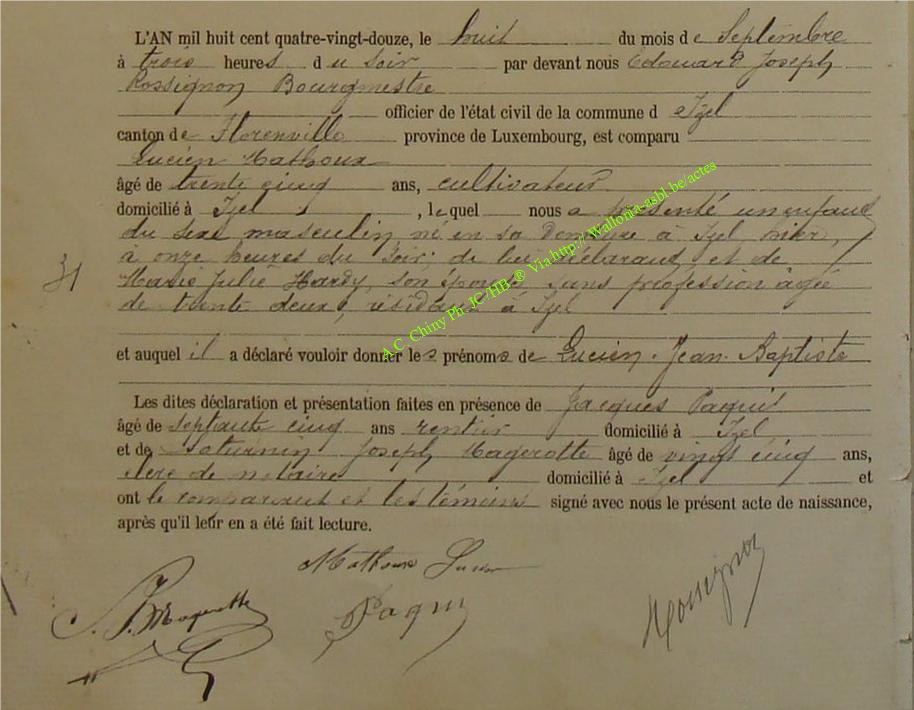 L'AN mil huit cent quatre-vingt-douze, le huit du mois de Septembre
à trois heures du soir par devant nous Edouard Joseph
Rossignon Bourgmestre
officier de l'état civil de la commune d Izel
canton de Florenville province de Luxembourg, est comparu
Lucien Mathoux
âgé de trente cinq ans, cultivateur
domicilié à Izel, lequel nous a présenté un enfant
du sexe masculin né en sa demeure à Izel, hier,
à onze heures du soir, de lui déclarant et de
31
Marie Julie Hardy, son épouse, sans profession âgée
de trente deux, résidant à Izel
et auquel il a déclaré vouloir donner les prénoms de Lucien. Jean. Baptiste
Les dites déclaration et présentation faites en présence de Jacques Paquis
âgé de septante cinq ans rentier domicilié à Izel
et de Saturnin Joseph Magerotte âgé de vingt cinq ans,
clerc de notaire domicilié à Izel et
ont le comparant et les témoins signé avec nous le présent acte de naissance,
après qu'il leur en a été fait lecture.
Mathoux Lucien
S. J. Magerotte
Paquis
Rossignon
A.C. Chiny Ph. JC/HB ® Via http://Wallonia-asbl.be/actes